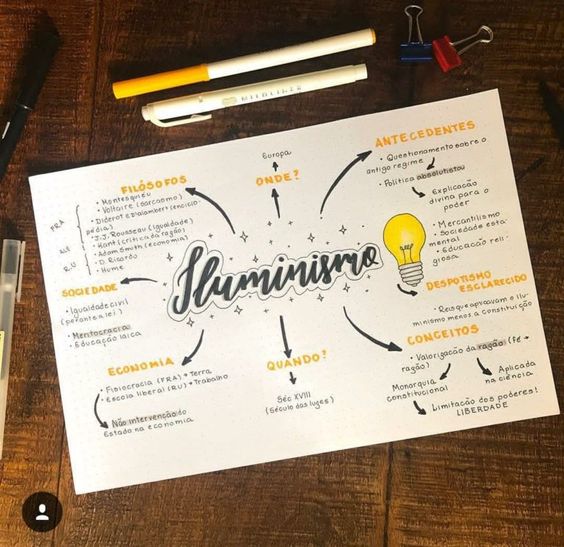 Iluminismo
FILÓSOFOS
FRA
ALE
RU
• Montesquieu
• Voltaire (sarcasmo)
• Diderot e Dalambert (enciclo-
pédia)
• J.J. Rousseau (igualdade)
• Kant (crítica da razão)
• Adam Smith (economia)
• D. Ricardo
• Hume
Europa
ONDE?
ANTECEDENTES
• Questionamento sobre o
antigo regime
• Política absolutista
Explicação
divina para o
poder
• Mercantilismo
• Sociedade esta-
mental
• Educação reli-
giosa
SOCIEDADE
• Igualdade civil
(perante a lei)
• Meritocracia
• Educação laica
DESPOTISMO
ESCLARECIDO
• Reis que apoiavam o ilu-
minismo menos a constituição
ECONOMIA
• Fisiocracia (FRA) → Terra
• Escola liberal (RU) → Trabalho
Não intervenção do
Estado na economia
QUANDO?
Séc XVIII
(Século das luzes)
CONCEITOS
• Valorização da razão (Fé ≠
razão)
Monarquia
constitucional
Aplicada
na ciência
Limitação dos poderes!
LIBERDADE